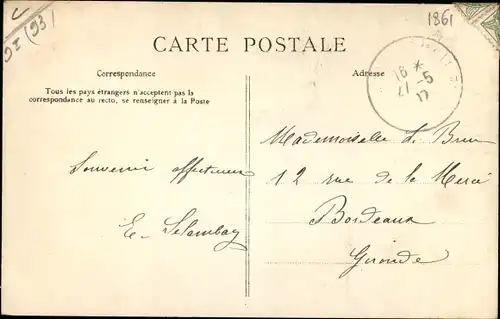 1861
CARTE POSTALE
Correspondance
Tous les pays étrangers n'acceptent pas la
correspondance au recto, se renseigner à la Poste
Souvenir affectueux
E. Lelambay
Adresse
16 *
27 -5
17
Mademoiselle Le Brun
12 rue de la Merci
Bordeaux
Gironde